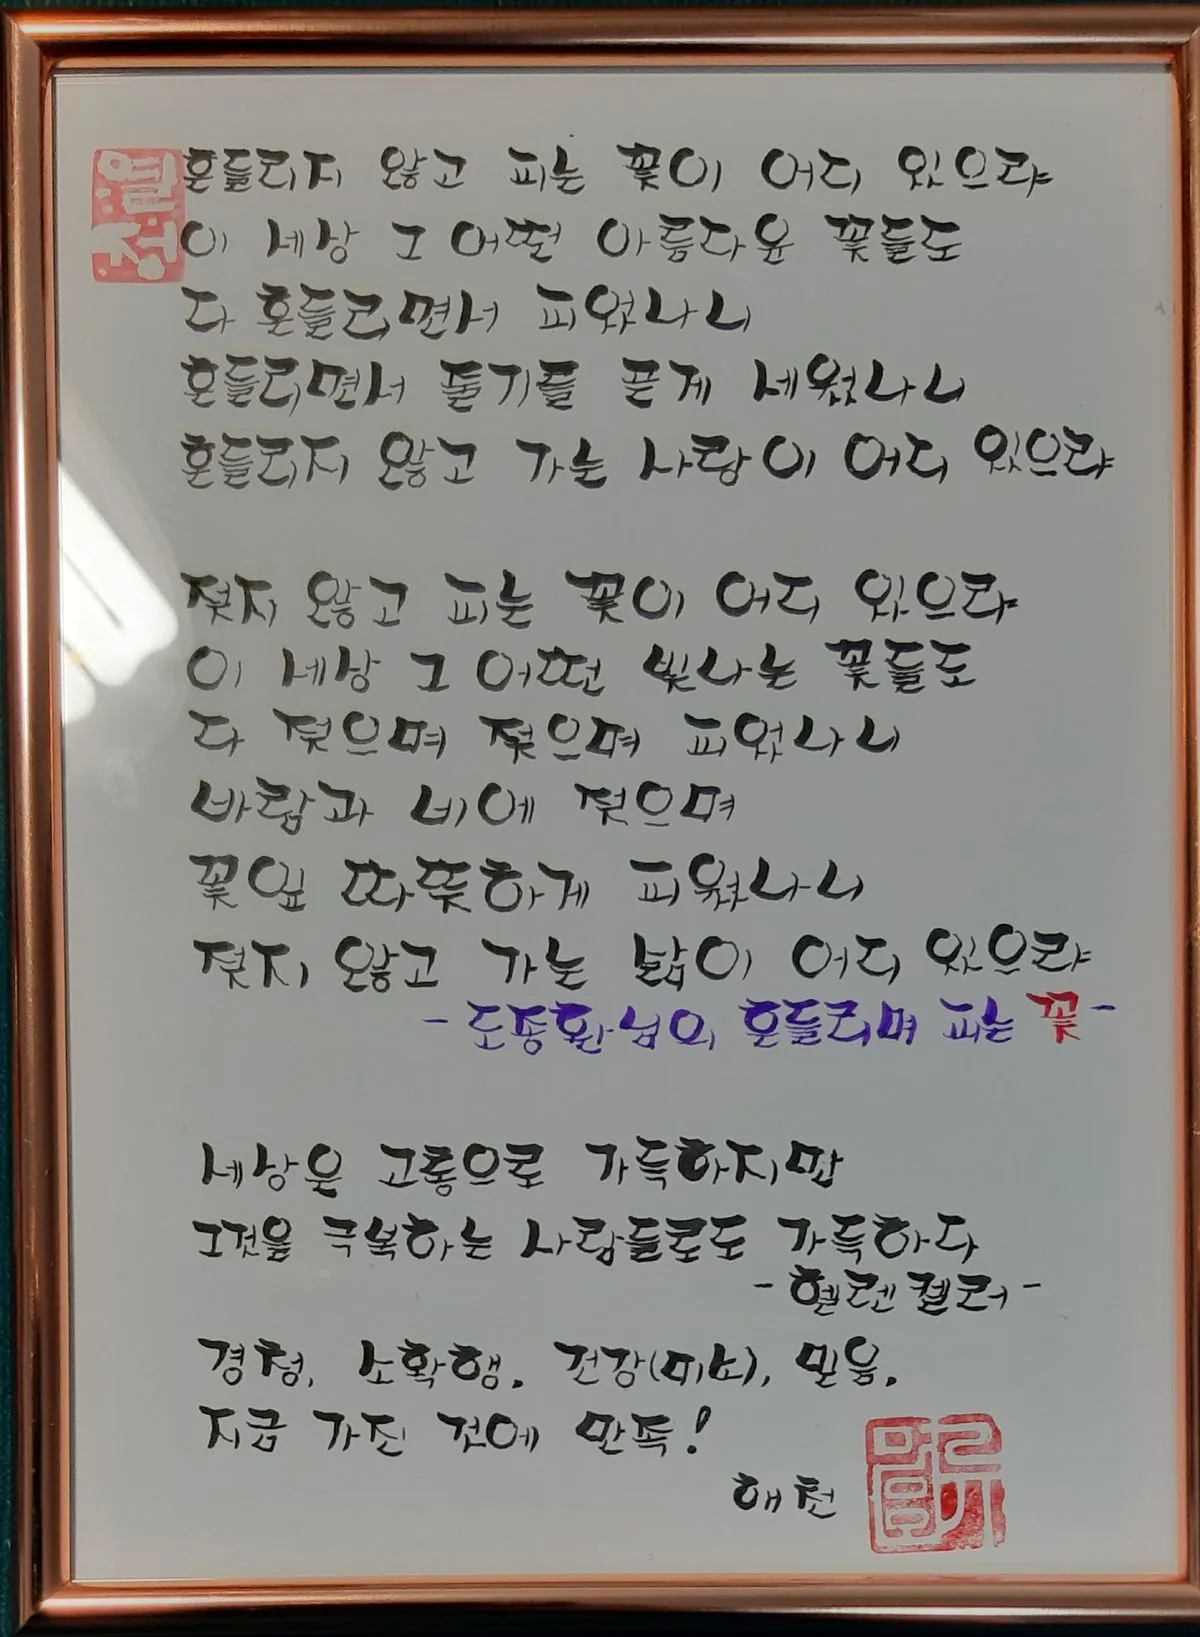 열정
흔들리지 않고 피는 꽃이 어디 있으랴
이 세상 그 어떤 아름다운 꽃들도
다 흔들리면서 피었나니
흔들리면서 줄기를 곧게 세웠나니
흔들리지 않고 가는 사랑이 어디 있으랴
젖지 않고 피는 꽃이 어디 있으랴
이 세상 그 어떤 빛나는 꽃들도
다 젖으며 젖으며 피었나니
바람과 비에 젖으며
꽃잎 따뜻하게 피웠나니
젖지 않고 가는 삶이 어디 있으랴
- 도종환님의 흔들리며 피는 꽃 -
세상은 고통으로 가득하지만
그것을 극복하는 사람들로도 가득하다
- 헬렌켈러 -
경청, 소확행. 건강(미소), 믿음.
지금 가진 것에 만족!
해천